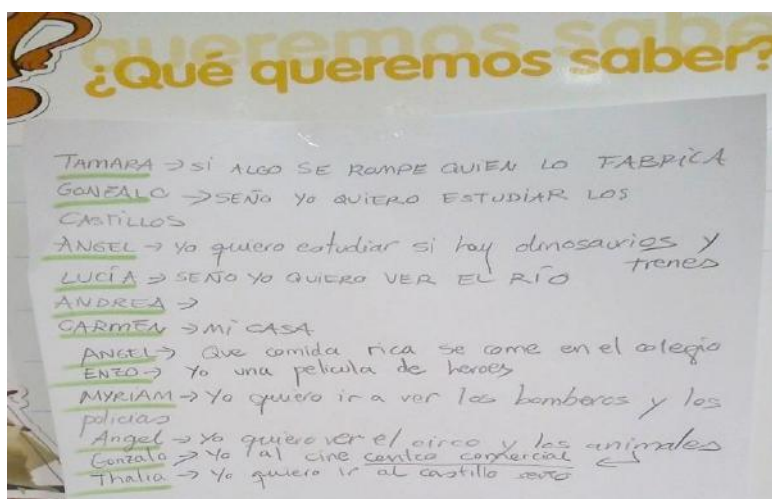 ¿Qué queremos saber?
TAMARA → Si ALGO SE ROMPE QUIEN LO FABRICA
GONZALO → SEÑO YO QUIERO ESTUDIAR LOS
CASTILLOS
ÁNGEL → Yo quiero estudiar si hay dinosaurios y
trenes
LUCÍA → SEÑO YO QUIERO VER EL RÍO
ANDREA →
CARMEN → Mi CASA
ANGEL → Que comida rica se come en el colegio
ENZO → Yo una pelicula de heroes
MYRIAM → Yo quiero ir a ver los bomberos y los
policias
Angel → Yo quiero ver el circo y los animales
Gonzalo → Yo al cine centro comercial
Thalia → Yo quiero ir al castillo